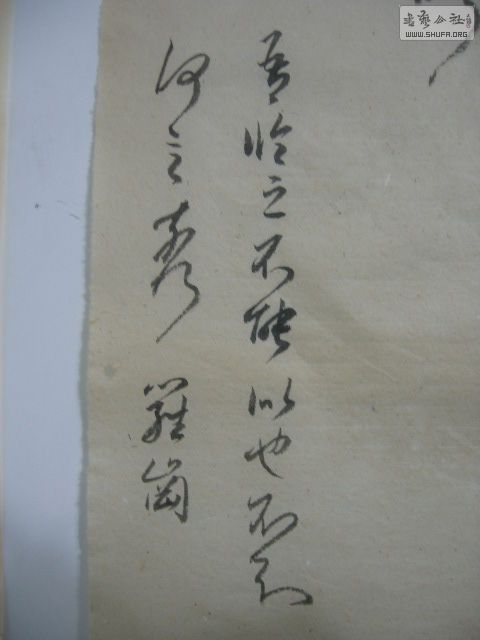 書藝公社
WWW.SHUFA.ORG
吾临之不能以也不知
何 羅崗